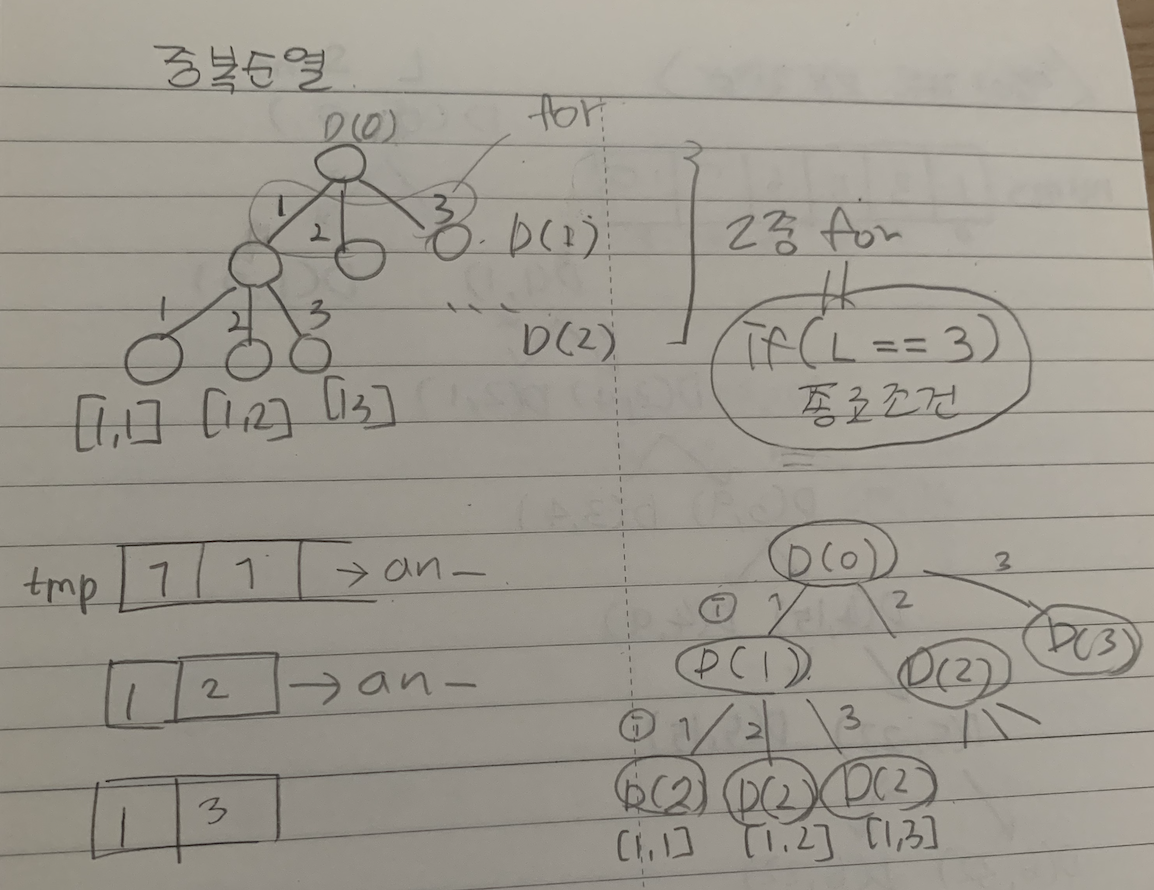 중복순열
D(0) for
1 2 3 D(1)
1 2 3 ... D(2)
[1,1] [1,2] [13]
2중 for
if(L == 3)
종료조건
tmp 1 1 → an_
1 2 → an_
1 3
D(0)
ⓘ 1 2 3
D(1) D(2) D(3)
ⓘ 1 2 3 1
D(2) D(2) D(2)
[1,1] [1.2] [1,3]